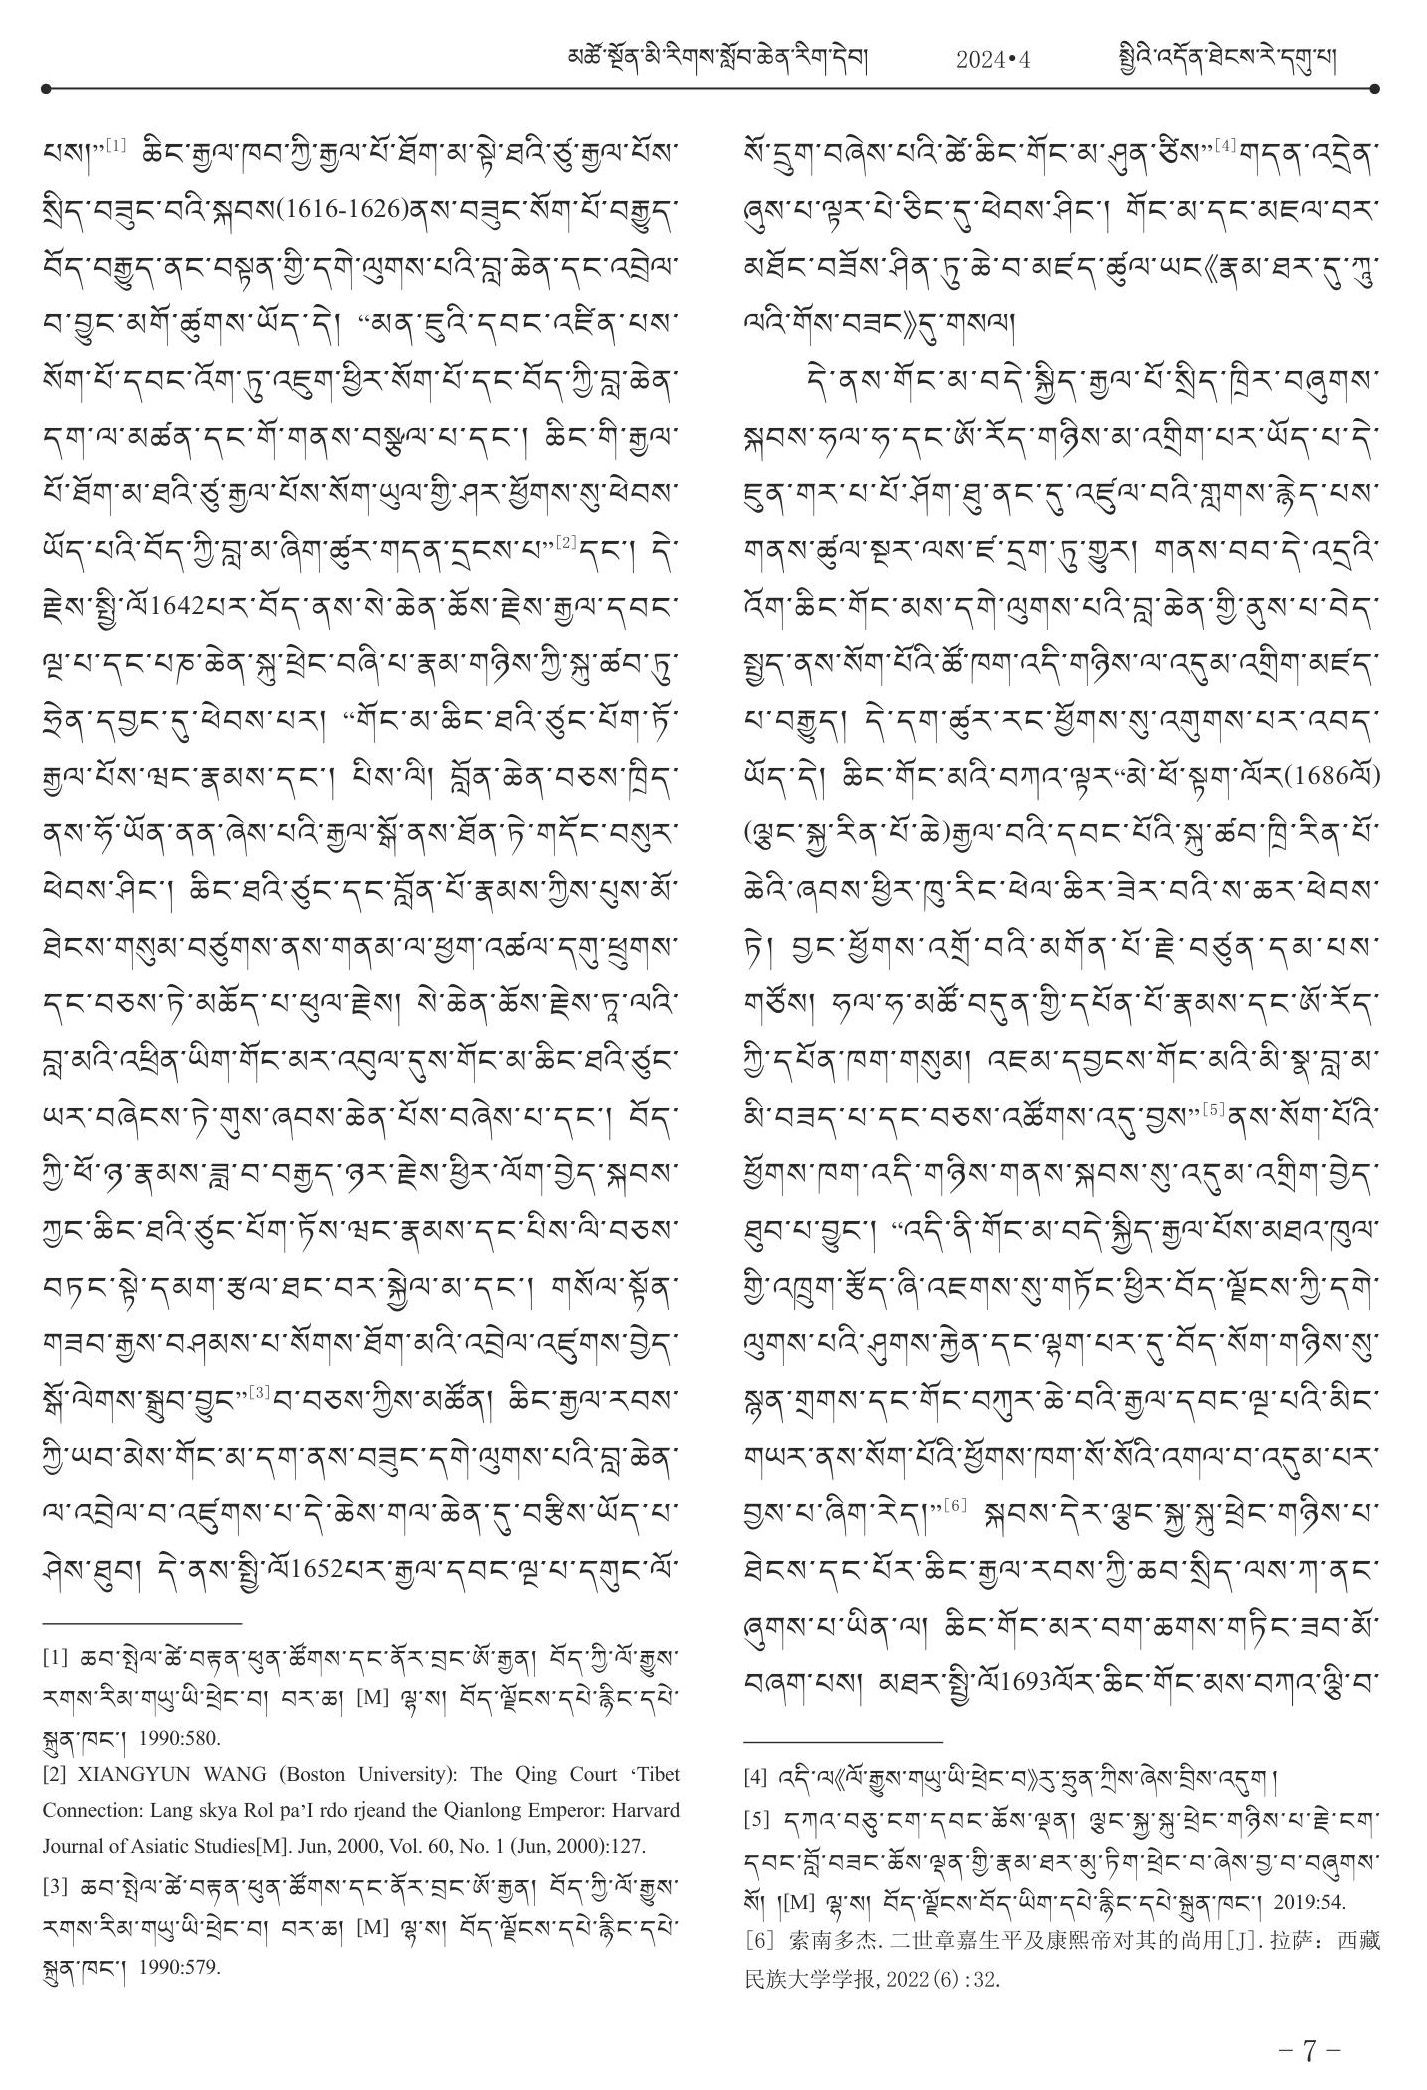 མཚོ་སྔོན་མི་རིགས་སློབ་ཆེན་རིག་དེབ། 2024•4 སྤྱིའི་འདོན་ཐེངས་རེ་དགུ་པ།
པས།”[1] ཆིང་རྒྱལ་ཁབ་ཀྱི་རྒྱལ་པོ་ཐོག་མ་སྟེ་ཐའི་ཙུ་རྒྱལ་པོས་
སྲིད་བཟུང་བའི་སྐབས(1616-1626)ནས་བཟུང་སོག་པོ་བརྒྱུད་
བོད་བརྒྱུད་ནང་བསྟན་གྱི་དགེ་ལུགས་པའི་བླ་ཆེན་དང་འབྲེལ་
བ་བྱུང་མགོ་ཚུགས་ཡོད་དེ། “མན་ཇུའི་དབང་འཛིན་པས་
སོག་པོ་དབང་འོག་ཏུ་འཇུག་ཕྱིར་སོག་པོ་དང་བོད་ཀྱི་བླ་ཆེན་
དག་ལ་མཚན་དང་གོ་གནས་བསྩལ་པ་དང་། ཆིང་གི་རྒྱལ་
པོ་ཐོག་མ་ཐའི་ཙུ་རྒྱལ་པོས་སོག་ཡུལ་གྱི་ཤར་ཕྱོགས་སུ་ཕེབས་
ཡོད་པའི་བོད་ཀྱི་བླ་མ་ཞིག་ཚུར་གདན་དྲངས་པ”[2]དང་། དེ་
རྗེས་སྤྱི་ལོ1642པར་བོད་ནས་སེ་ཆེན་ཆོས་རྗེས་རྒྱལ་དབང་
ལྔ་པ་དང་པཎ་ཆེན་སྐུ་ཕྲེང་བཞི་པ་རྣམ་གཉིས་ཀྱི་སྐུ་ཚབ་ཏུ་
ཧྲེན་དབྱང་དུ་ཕེབས་པར། “གོང་མ་ཆིང་ཐའི་ཙུང་པོག་ཏོ་
རྒྱལ་པོས་ཝང་རྣམས་དང་། པིས་ལི། བློན་ཆེན་བཅས་ཁྲིད་
ནས་ཧོ་ཡོན་ནན་ཞེས་པའི་རྒྱལ་སྒོ་ནས་ཐོན་ཏེ་གདོང་བསུར་
ཕེབས་ཤིང་། ཆིང་ཐའི་ཙུང་དང་བློན་པོ་རྣམས་ཀྱིས་པུས་མོ་
ཐེངས་གསུམ་བཙུགས་ནས་གནམ་ལ་ཕྱག་འཚལ་དགུ་ཕྲུགས་
དང་བཅས་ཏེ་མཆོད་པ་ཕུལ་རྗེས། སེ་ཆེན་ཆོས་རྗེས་ཏཱ་ལའི་
བླ་མའི་འཕྲིན་ཡིག་གོང་མར་འབུལ་དུས་གོང་མ་ཆིང་ཐའི་ཙུང་
ཡར་བཞེངས་ཏེ་གུས་ཞབས་ཆེན་པོས་བཞེས་པ་དང་། བོད་
ཀྱི་ཕོ་ཉ་རྣམས་ཟླ་བ་བརྒྱད་ཉར་རྗེས་ཕྱིར་ལོག་བྱེད་སྐབས་
ཀྱང་ཆིང་ཐའི་ཙུང་པོག་ཏོས་ཝང་རྣམས་དང་པིས་ལི་བཅས་
བཏང་སྟེ་དམག་རྩལ་ཐང་བར་སྐྱེལ་མ་དང་། གསོལ་སྟོན་
གཟབ་རྒྱས་བཤམས་པ་སོགས་ཐོག་མའི་འབྲེལ་འཛུགས་བྱེད་
སྒོ་ལེགས་སྒྲུབ་བྱུང”[3]བ་བཅས་ཀྱིས་མཚོན། ཆིང་རྒྱལ་རབས་
ཀྱི་ཡབ་མེས་གོང་མ་དག་ནས་བཟུང་དགེ་ལུགས་པའི་བླ་ཆེན་
ལ་འབྲེལ་བ་འཛུགས་པ་དེ་ཆེས་གལ་ཆེན་དུ་བརྩིས་ཡོད་པ་
ཤེས་ཐུབ། དེ་ནས་སྤྱི་ལོ1652པར་རྒྱལ་དབང་ལྔ་པ་དགུང་ལོ་
[1] ཆབ་སྤེལ་ཚེ་བརྟན་ཕུན་ཚོགས་དང་ནོར་བྲང་ཨོ་རྒྱན། བོད་ཀྱི་ལོ་རྒྱུས་
རགས་རིམ་གཡུ་ཡི་ཕྲེང་བ། བར་ཆ། [M] ལྷ་ས། བོད་ལྗོངས་དཔེ་རྙིང་དཔེ་
སྐྲུན་ཁང་། 1990:580.
[2] XIANGYUN WANG (Boston University): The Qing Court ‘Tibet
Connection: Lang skya Rol pa’I rdo rjeand the Qianlong Emperor: Harvard
Journal of Asiatic Studies[M]. Jun, 2000, Vol. 60, No. 1 (Jun, 2000):127.
[3] ཆབ་སྤེལ་ཚེ་བརྟན་ཕུན་ཚོགས་དང་ནོར་བྲང་ཨོ་རྒྱན། བོད་ཀྱི་ལོ་རྒྱུས་
རགས་རིམ་གཡུ་ཡི་ཕྲེང་བ། བར་ཆ། [M] ལྷ་ས། བོད་ལྗོངས་དཔེ་རྙིང་དཔེ་
སྐྲུན་ཁང་། 1990:579.
སོ་དྲུག་བཞེས་པའི་ཚེ་ཆིང་གོང་མ་ཤུན་ཙིས”[4]གདན་འདྲེན་
ཞུས་པ་ལྟར་པེ་ཅིང་དུ་ཕེབས་ཤིང་། གོང་མ་དང་མཇལ་བར་
མཐོང་བཟོས་ཤིན་ཏུ་ཆེ་བ་མཛད་ཚུལ་ཡང《རྣམ་ཐར་དུ་ཀཱུ་
ལའི་གོས་བཟང》དུ་གསལ།
དེ་ནས་གོང་མ་བདེ་སྐྱིད་རྒྱལ་པོ་སྲིད་ཁྲིར་བཞུགས་
སྐབས་ཧལ་ཧ་དང་ཨོ་རོད་གཉིས་མ་འགྲིག་པར་ཡོད་པ་དེ་
ཇུན་གར་པ་པོ་ཤོག་ཐུ་ནང་དུ་འཛུལ་བའི་གླགས་རྙེད་པས་
གནས་ཚུལ་སྔར་ལས་ཛ་དྲག་ཏུ་གྱུར། གནས་བབ་དེ་འདྲའི་
འོག་ཆིང་གོང་མས་དགེ་ལུགས་པའི་བླ་ཆེན་གྱི་ནུས་པ་བེད་
སྤྱད་ནས་སོག་པོའི་ཚོ་ཁག་འདི་གཉིས་ལ་འདུམ་འགྲིག་མཛད་
པ་བརྒྱུད། དེ་དག་ཚུར་རང་ཕྱོགས་སུ་འགུགས་པར་འབད་
ཡོད་དེ། ཆིང་གོང་མའི་བཀའ་ལྟར“མེ་ཕོ་སྟག་ལོར(1686ལོ)
(ལྕང་སྐྱ་རིན་པོ་ཆེ)རྒྱལ་བའི་དབང་པོའི་སྐུ་ཚབ་ཁྲི་རིན་པོ་
ཆེའི་ཞབས་ཕྱིར་ཁུ་རིང་ཕེལ་ཆིར་ཟེར་བའི་ས་ཆར་ཕེབས་
ཏེ། བྱང་ཕྱོགས་འགྲོ་བའི་མགོན་པོ་རྗེ་བཙུན་དམ་པས་
གཙོས། ཧལ་ཧ་མཚོ་བདུན་གྱི་དཔོན་པོ་རྣམས་དང་ཨོ་རོད་
ཀྱི་དཔོན་ཁག་གསུམ། འཇམ་དབྱངས་གོང་མའི་མི་སྣ་བླ་མ་
མི་བཟད་པ་དང་བཅས་འཚོགས་འདུ་བྱས”[5]ནས་སོག་པོའི་
ཕྱོགས་ཁག་འདི་གཉིས་གནས་སྐབས་སུ་འདུམ་འགྲིག་བྱེད་
ཐུབ་པ་བྱུང་། “འདི་ནི་གོང་མ་བདེ་སྐྱིད་རྒྱལ་པོས་མཐའ་ཁུལ་
གྱི་འཁྲུག་རྩོད་ཞི་འཇགས་སུ་གཏོང་ཕྱིར་བོད་ལྗོངས་ཀྱི་དགེ་
ལུགས་པའི་ཤུགས་རྐྱེན་དང་ལྷག་པར་དུ་བོད་སོག་གཉིས་སུ་
སྙན་གྲགས་དང་གོང་བཀུར་ཆེ་བའི་རྒྱལ་དབང་ལྔ་པའི་མིང་
གཡར་ནས་སོག་པོའི་ཕྱོགས་ཁག་སོ་སོའི་འགལ་བ་འདུམ་པར་
བྱས་པ་ཞིག་རེད།”[6] སྐབས་དེར་ལྕང་སྐྱ་སྐུ་ཕྲེང་གཉིས་པ་
ཐེངས་དང་པོར་ཆིང་རྒྱལ་རབས་ཀྱི་ཆབ་སྲིད་ལས་ཀ་ནང་
ཞུགས་པ་ཡིན་ལ། ཆིང་གོང་མར་བག་ཆགས་གཏིང་ཟབ་མོ་
བཞག་པས། མཐར་སྤྱི་ལོ1693ལོར་ཆིང་གོང་མས་བཀའ་ལྕི་བ་
[4] འདི་ལ《ལོ་རྒྱུས་གཡུ་ཡི་ཕྲེང་བ》རུ་ཧྲུན་ཀྲིས་ཞེས་བྲིས་འདུག །
[5] དཀའ་བཅུ་ངག་དབང་ཆོས་ལྡན། ལྕང་སྐྱ་སྐུ་ཕྲེང་གཉིས་པ་རྗེ་ངག་
དབང་བློ་བཟང་ཆོས་ལྡན་གྱི་རྣམ་ཐར་མུ་ཏིག་ཕྲེང་བ་ཞེས་བྱ་བ་བཞུགས་
སོ། །[M] ལྷ་ས། བོད་ལྗོངས་བོད་ཡིག་དཔེ་རྙིང་དཔེ་སྐྲུན་ཁང་། 2019:54.
[6] 索南多杰. 二世章嘉生平及康熙帝对其的尚用[J]. 拉萨：西藏
民族大学学报, 2022(6):32.
– 7 –